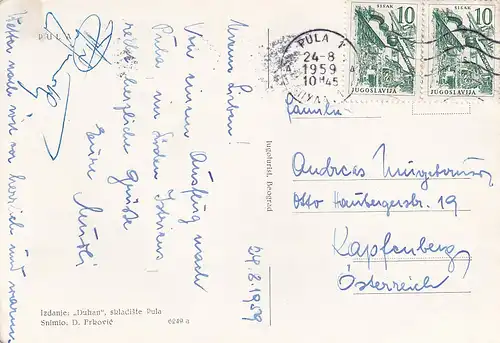 PULA
Meine Lieben!
Von einem Ausflug nach
Pula, im Süden Istriens
recht herzliche Grüße
Eure
Wetter nach wie vor herrlich und warm.
24.8.1959
Izdanje: „Duhan", skladište Pula
Snimio. D. Prković
6249 a
Jugoturist, Beograd
SISAK
10
JUGOSLAVIJA
SISAK
10
JUGOSLAVIJA
PULA 1
24-8
1959
10 H 45
Familie
Andreas
Otto Haubergerstr. 19
Kapfenberg
Österreich